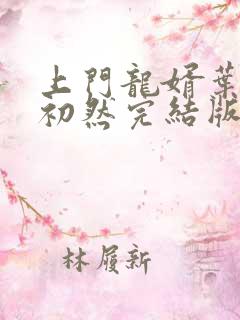 上門龍婿葉
初然完結版
林履新